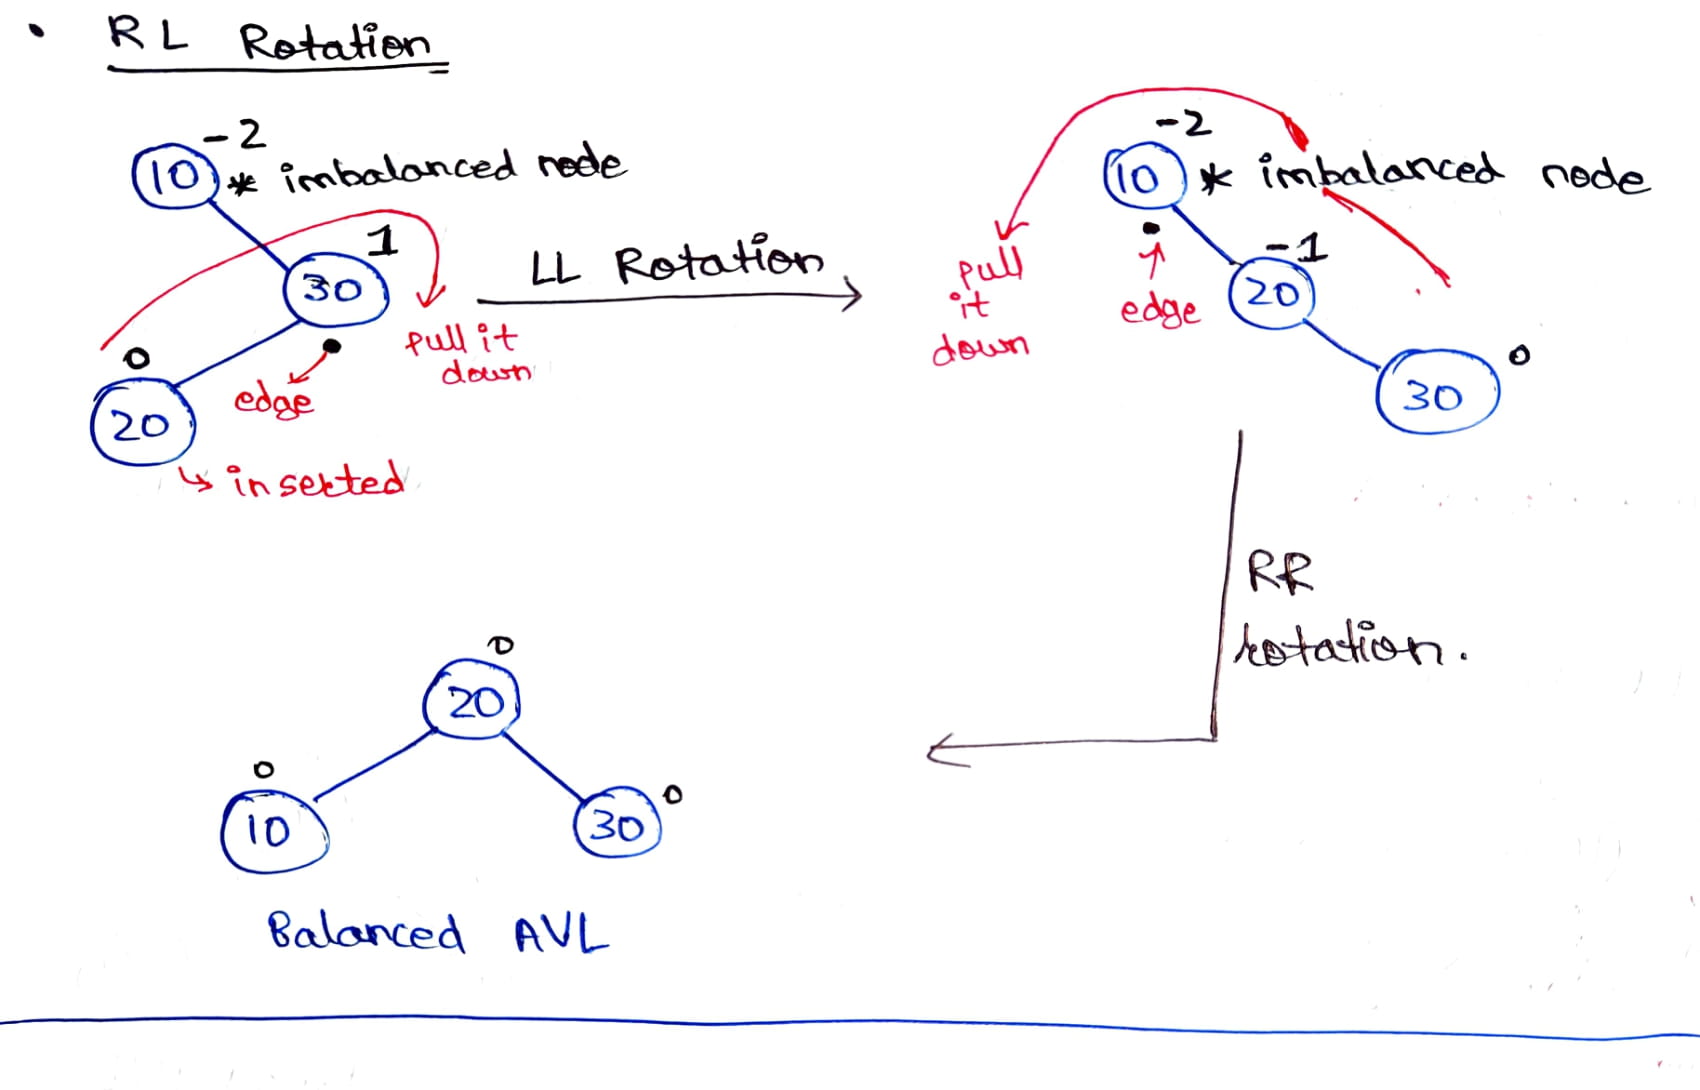 • RL Rotation
-2
10 * imbalanced node
1
30
pull it
down
0
20
edge
↳ inserted
LL Rotation
-2
10 * imbalanced node
pull
it
down
edge
-1
20
0
30
RR
rotation.
0
20
0
10
0
30
Balanced AVL